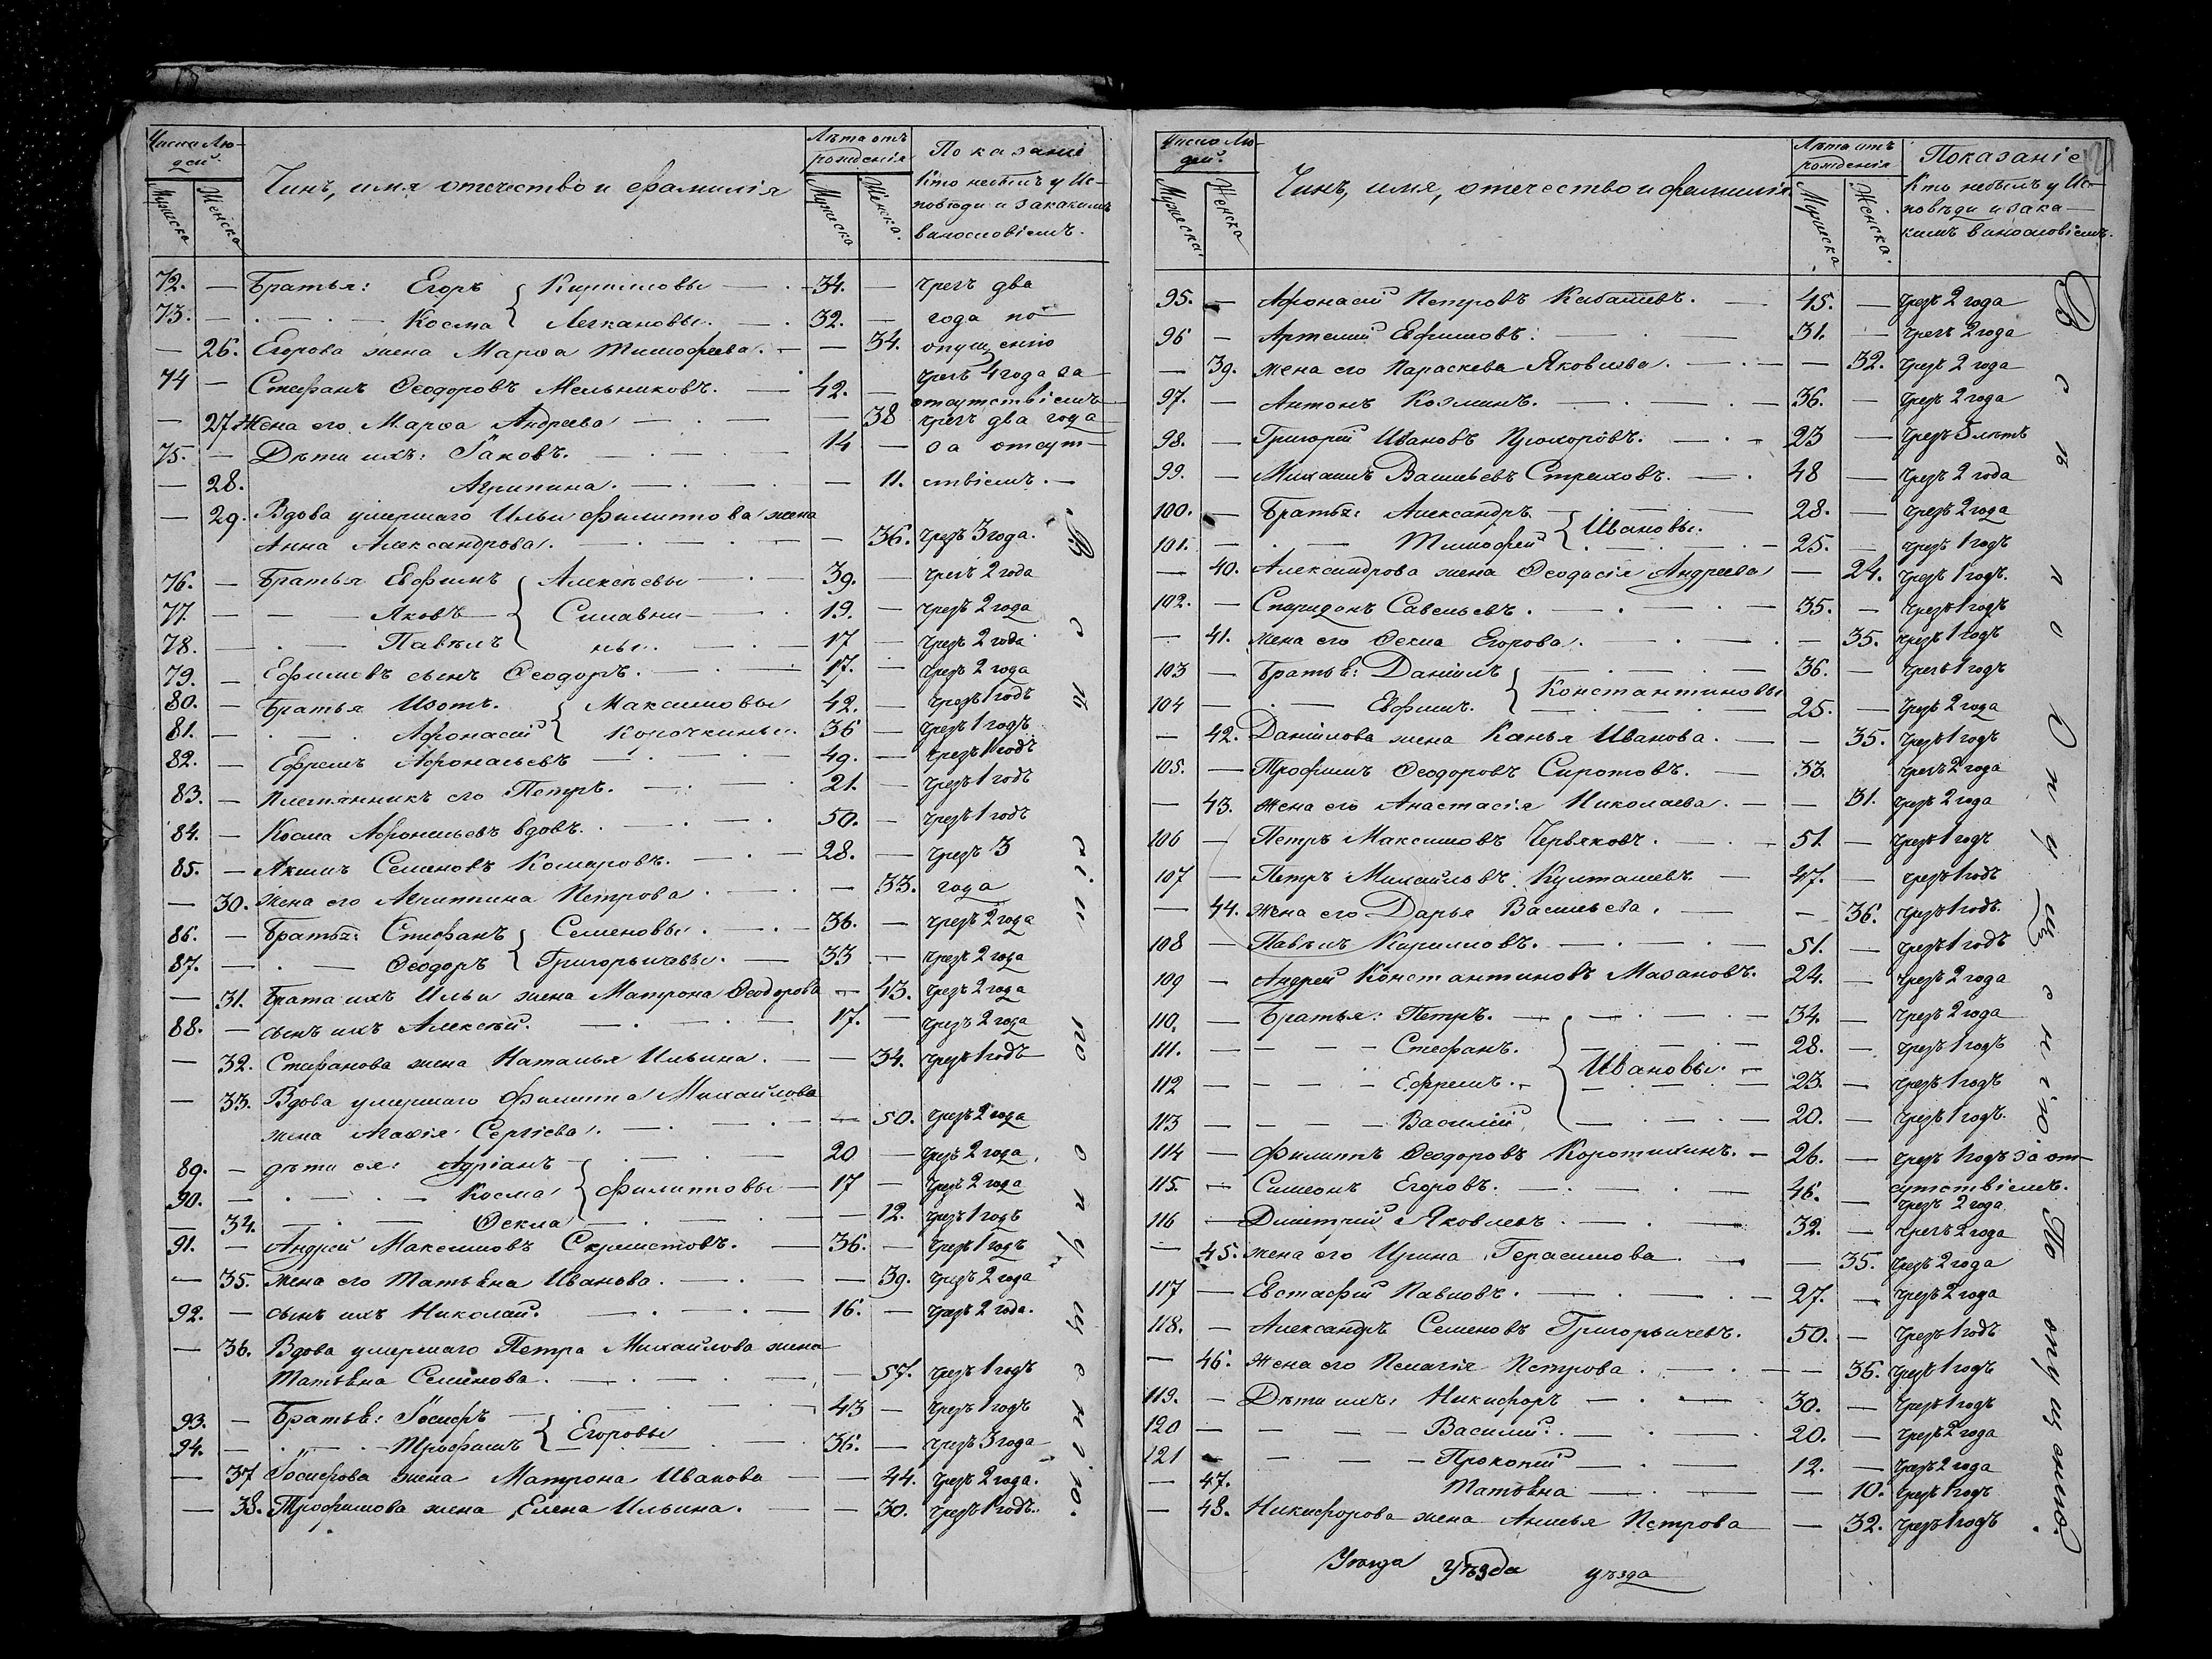 Число Лю-
дей.
Мужеска
Женска
Чинъ, имя отечество и фамилія
Лѣта отъ
рожденія
Мужеска
Женска.
Показаніе
Кто небылъ у Ис-
повѣди и закакимъ
винословіемъ.
72. — Братья: Егоръ { Кириловы — 34. — чрезъ два
73. — Косма { Легкановы. — 32. — года по
— 26. Егорова жена Марѳа Тимофеева. — — 34. опущенію
74 — Стефанъ Ѳеодоровъ Мельниковъ. — 42. — чрезъ 4 года за
отсутствіемъ
— 27. Жена его Марѳа Андреева — — 38 чрезъ два года
75. — Дѣти ихъ: Іаковъ. — 14 — за отсут-
— 28. Агрипина. — — 11. ствіемъ. —
— 29. Вдова умершаго Ильи Филиппова жена
Анна Александрова. — — 36. чрезъ 3 года.
76. — Братья Евфимъ { Алексѣевы — 39. — чрезъ 2 года
77. — — Яковъ — { Силавни — 19. — чрезъ 2 года
78. — Павелъ { ны. — 17 — чрезъ 2 года
79. — Ефимовъ сынъ Ѳеодоръ. — 17. — чрезъ 2 года
80. — Братья Изотъ. { Максимовы 42. — чрезъ 1 годъ
81. — Афонасій { Колочкины. 36 — чрезъ 1 годъ
82. — Ефремъ Афонасьевъ — 49. — чрезъ 1 годъ
83. — Племянникъ его Петръ. — 21. — чрезъ 1 годъ
84. — Косма Афонасьевъ вдовъ. — 50. — чрезъ 1 годъ
85. — Акимъ Семеновъ Комаровъ. — 28. — чрезъ 3
— 30. Жена его Агиппина Петрова — 33. года
86. — Братья: Стефанъ { Семеновы. — 36. — чрезъ 2 года
87. — — Ѳеодоръ { Григорьичевы. — 33 — чрезъ 2 года
— 31. Брата ихъ Ильи жена Матрона Ѳеодорова — 43. чрезъ 2 года
88. — сынъ ихъ Алексѣй. — 17. — чрезъ 2 года
— 32. Стефанова жена Наталья Ильина. — — 34. чрезъ 1 годъ
— 33. Вдова умершаго Филиппа Михайлова
жена Марія Сергіева. — — 50. чрезъ 2 года
89. — дѣти ея: Адріанъ — { — 20 — чрезъ 2 года
90. — — Косма { Филипповы — 17 — чрезъ 2 года
— 34. — Ѳекла — — 12. чрезъ 1 годъ
91. — Андрей Максимовъ — 36. — чрезъ 1 годъ
— 35. жена его Татьяна Иванова. — — 39. чрезъ 2 года
92. — сынъ ихъ Николай. — 16. — чрезъ 2 года.
— 36. Вдова умершаго Петра Михайлова жена
Татьяна Семенова. — — 57. чрезъ 1 годъ
93. — Братья: Іосифъ — { — 43 — чрезъ 1 годъ
94. — — Трофимъ { Егоровы 36. — чрезъ 3 года
— 37 Іосифова жена Матрона Иванова — 44. чрезъ 2 года.
— 38. Трофимова жена Елена Ильина. — — 30. чрезъ 1 годъ.
Число Лю-
дей.
Мужеска
Женска
Чинъ, имя, отечество и фамилія
Лѣта отъ
рожденія
Мужеска
Женска.
Показаніе
Кто небылъ у Ис-
повѣди и зака-
кимъ винословіемъ.
95. — Афонасій Петровъ Кабашевъ. — 45. — чрезъ 2 года
96 — Артемій Евфимовъ. — 31. — чрезъ 2 года
— 39. жена его Параскева Яковлева. — — 32. чрезъ 2 года
97. — Антонъ Козминъ. — 36. — чрезъ 2 года
98. — Григорій Ивановъ — 23 — чрезъ 5 лѣтъ
99. — Михаилъ Васильевъ Страховъ. — 48 — чрезъ 2 года
100. — Братья: Александръ — { Ивановы. 28. — чрезъ 2 года
101. — — Тимофей { — 25. — чрезъ 1 годъ
— 40. Александрова жена Ѳеодосія Андреева — 24. чрезъ 1 годъ.
102. — Спиридонъ Савельевъ. — 35. — чрезъ 1 годъ
— 41. жена его Ѳекла Егорова. — — 35. чрезъ 1 годъ
103 — Братья: Даніилъ { — 36. — чрезъ 1 годъ
104 — — Евфимъ. { Константиновы 25. — чрезъ 2 года
— 42. Даніилова жена Ивановa. — — 35. чрезъ 1 годъ
105. — Трофимъ Ѳеодоровъ Сиротовъ. — 33. чрезъ 2 года
— 43. Жена его Анастасія Николаева. — — 31. чрезъ 2 года
106 — Петръ Максимовъ Червяковъ. — 51. — чрезъ 1 годъ
107 — Петръ Михайловъ Култашевъ — 47. — чрезъ 1 годъ
— 44. Жена его Дарья Васильева. — — 36. чрезъ 1 годъ.
108 — Павелъ Кириловъ. — 51. — чрезъ 1 годъ
109 — Андрей Константиновъ Мазановъ. 24. — чрезъ 2 года
110. — Братья: Петръ. — 34. — чрезъ 2 года
111. — Стефанъ. { — 28. — чрезъ 1 годъ
112 — Ефремъ. — { Ивановы. — 23. — чрезъ 1 годъ
113 — Василій { — 20. — чрезъ 1 годъ.
114 — Филиппъ Ѳеодоровъ Коротихинъ. — 26. — чрезъ 1 годъ за от-
сутствіемъ.
115. — Симеонъ Егоровъ. — 46. — чрезъ 2 года
116 — Димитрій Яковлевъ. — 32. — чрезъ 2 года
— 45. жена его Ирина Герасимова — — 35. чрезъ 2 года
117 — Евстафій Павловъ. — 27. — чрезъ 2 года
118. — Александръ Семеновъ Григорьичевъ. 50. — чрезъ 1 годъ
— 46. Жена его Пелагія Петрова. — — 36. чрезъ 1 годъ
119. — Дѣти ихъ: Никифоръ — 30. — чрезъ 1 годъ
120 — Василій. — 20. — чрезъ 2 года
121 — Прокопій — 12. — чрезъ 2 года
— 47. Татьяна — — 10. чрезъ 1 годъ
— 48. Никифорова жена Петрова — 32. чрезъ 1 годъ
Уѣзда Уѣзда уѣзда
Всѣ по опущенію. По опущенію.